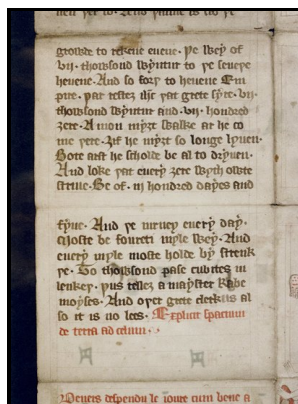 growde to rekene euene · þe wey of
vij · thowsond wyntur to þe seueþe
heuene · And so forþ to heuene Em
pire · þat tellez þis þat grete syre · vij ·
thowsond wyntur and · vij · hondred
ȝere · A mon myȝt walke ar he co
me ȝere · ȝif he myȝt so longe lyuen ·
Bote arst he scholde be al to dryuen ·
And loke þat euery ȝere wyth owte
striue · Be of · iij hondred dayes and
fyue · And þe iurney euery day ·
scholde be fourti myle wey · And
euery myle moste holde by strenk
þe · Two thowsond pase cubites in
lenkeþ · þus tellez a mayster Rabe
moyses · And oþer grete clerkus al
so it is no lees · Explicit spacium
de terra ad celum ·